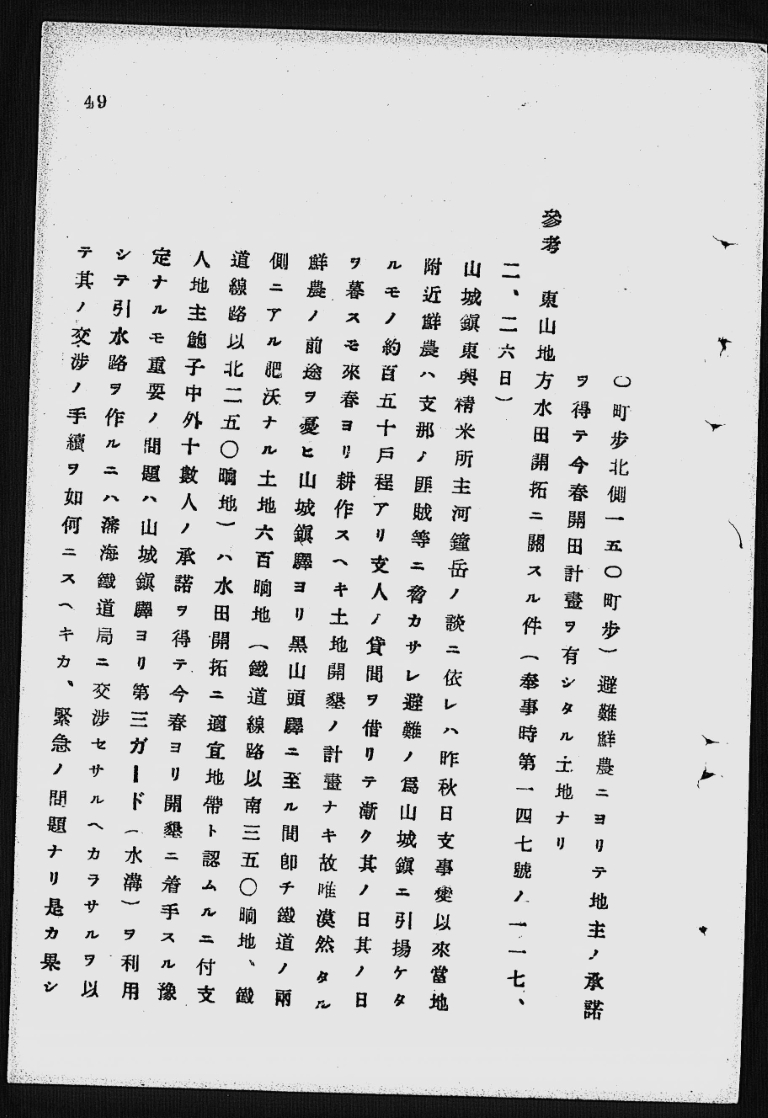 〇町步北側一五〇町步）避難鮮農ニヨリテ地主ノ承諾
ヲ得テ今春開田計畫ヲ有シタル土地ナリ
參考　東山地方水田開拓ニ關スル件（奉事時第一四七號ノ一一七、
二、二六日）
山城鎭東興精米所主河鐘岳ノ談ニ依レハ昨秋日支事變以來當地
附近鮮農ハ支那ノ匪賊等ニ脅カサレ避難ノ爲山城鎭ニ引揚ケタ
ルモノ約百五十戶程アリ支人ノ貸間ヲ借リテ漸ク其ノ日其ノ日
ヲ暮スモ來春ヨリ耕作スヘキ土地開墾ノ計畫ナキ故唯漠然タル
鮮農ノ前途ヲ憂ヒ山城鎭驛ヨリ黑山頭驛ニ至ル間卽チ鐵道ノ兩
側ニアル肥沃ナル土地六百晌地（鐵道線路以南三五〇晌地、鐵
道線路以北二五〇晌地）ハ水田開拓ニ適宜地帶ト認ムルニ付支
人地主鮑子中外十數人ノ承諾ヲ得テ今春ヨリ開墾ニ着手スル豫
定ナルモ重要ノ問題ハ山城鎭驛ヨリ第三ガード（水溝）ヲ利用
シテ引水路ヲ作ルニハ瀋海鐵道局ニ交涉セサルヘカラサルヲ以
テ其ノ交涉ノ手續ヲ如何ニスヘキカ、緊急ノ問題ナリ是カ果シ
49